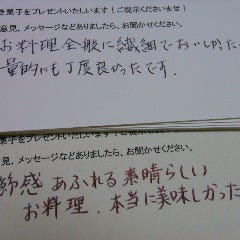 き菓子をプレゼントいたします！ご提示くださいませ！
意見、メッセージなどありましたら、お聞かせください。
お料理全般に繊細でおいしかった
量的にも丁度良かったです.
菓子をプレゼントいたします！ご提示ください
見、メッセージなどありましたら、お聞かせください。
感あふれる素晴らしい
お料理．本当に美味しかった